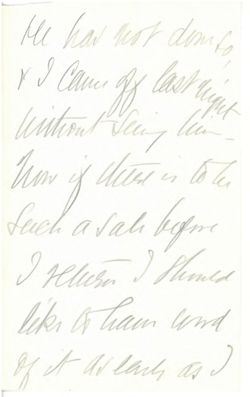 He has not done so,
& I came off last night
without seeing him —
Now if there is to be
such a sale before
I return I should
like to have word
of it as early as I